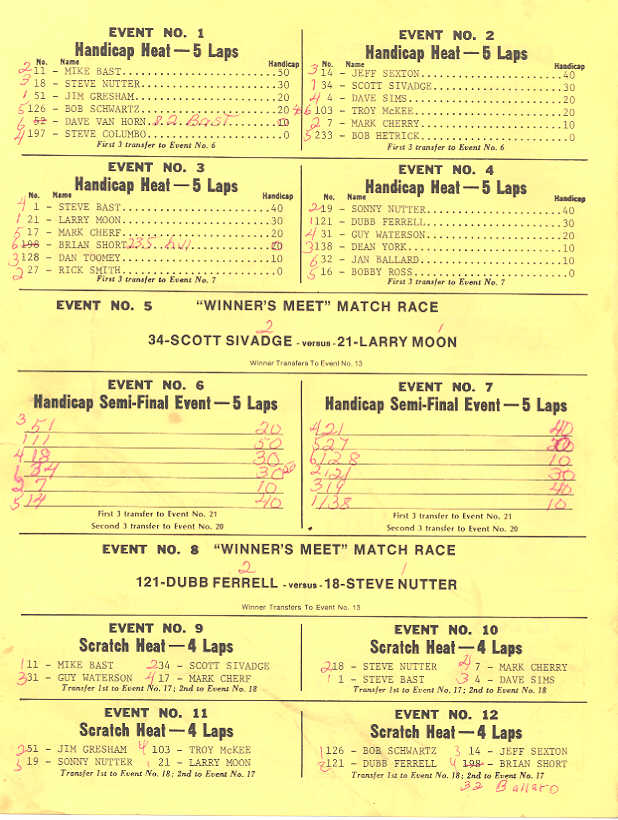 EVENT NO. 1
Handicap Heat — 5 Laps
No. Name Handicap
2 11 - MIKE BAST 50
3 18 - STEVE NUTTER 30
1 51 - JIM GRESHAM 20
5 126 - BOB SCHWARTZ 20
6 52 - DAVE VAN HORN 82 Bast 10
4 197 - STEVE COLUMBO 0
First 3 transfer to Event No. 6
EVENT NO. 2
Handicap Heat — 5 Laps
No. Name Handicap
3 14 - JEFF SEXTON 40
1 34 - SCOTT SIVADGE 30
4 4 - DAVE SIMS 20
6 103 - TROY McKEE 20
2 7 - MARK CHERRY 10
5 233 - BOB HETRICK 0
First 3 transfer to Event No. 6
EVENT NO. 3
Handicap Heat — 5 Laps
No. Name Handicap
4 1 - STEVE BAST 40
1 21 - LARRY MOON 30
5 17 - MARK CHERF 20
6 198 - BRIAN SHORT 235 20
3 128 - DAN TOOMEY 10
2 27 - RICK SMITH 0
First 3 transfer to Event No. 7
EVENT NO. 4
Handicap Heat — 5 Laps
No. Name Handicap
2 19 - SONNY NUTTER 40
1 121 - DUBB FERRELL 30
4 31 - GUY WATERSON 20
3 138 - DEAN YORK 10
6 32 - JAN BALLARD 10
5 16 - BOBBY ROSS 0
First 3 transfer to Event No. 7
EVENT NO. 5 "WINNER'S MEET" MATCH RACE
2 1
34-SCOTT SIVADGE - versus - 21-LARRY MOON
Winner Transfers To Event No. 13
EVENT NO. 6
Handicap Semi-Final Event — 5 Laps
3 51 20
111 50
4 18 30
1 34 30
2 7 10
5 14 40
First 3 transfer to Event No. 21
Second 3 transfer to Event No. 20
EVENT NO. 7
Handicap Semi-Final Event — 5 Laps
4 21 40
5 27
6 128 10
2 121 30
3 19 40
1 138 10
First 3 transfer to Event No. 21
Second 3 transfer to Event No. 20
EVENT NO. 8 "WINNER'S MEET" MATCH RACE
2 1
121-DUBB FERRELL - versus - 18-STEVE NUTTER
Winner Transfers To Event No. 13
EVENT NO. 9
Scratch Heat — 4 Laps
1 11 - MIKE BAST 2 34 - SCOTT SIVADGE
3 31 - GUY WATERSON 4 17 - MARK CHERF
Transfer 1st to Event No. 17; 2nd to Event No. 18
EVENT NO. 10
Scratch Heat — 4 Laps
2 18 - STEVE NUTTER 4 7 - MARK CHERRY
1 1 - STEVE BAST 3 4 - DAVE SIMS
Transfer 1st to Event No. 17; 2nd to Event No. 18
EVENT NO. 11
Scratch Heat — 4 Laps
2 51 - JIM GRESHAM 4 103 - TROY McKEE
3 19 - SONNY NUTTER 1 21 - LARRY MOON
Transfer 1st to Event No. 18; 2nd to Event No. 17
EVENT NO. 12
Scratch Heat — 4 Laps
1 126 - BOB SCHWARTZ 3 14 - JEFF SEXTON
2 121 - DUBB FERRELL 4 198 - BRIAN SHORT
Transfer 1st to Event No. 18; 2nd to Event No. 17
32 Ballard